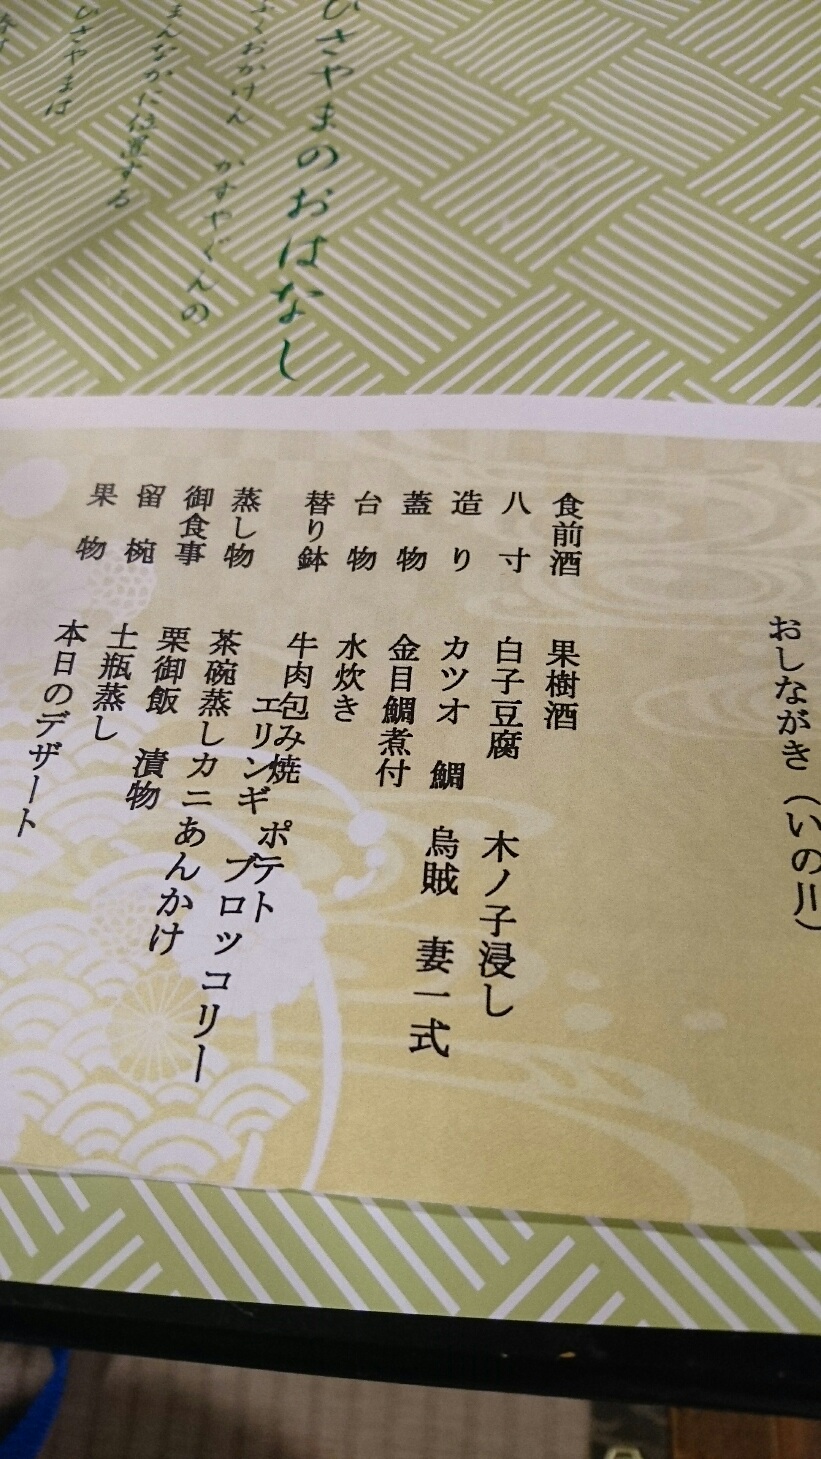 ひさやまのおはなし
ふくおかけん かすやぐんの
まんなかに位置する
ひさやまは
おしながき（いの川）
食前酒 果樹酒
八寸 白子豆腐 木ノ子浸し
造り カツオ 鯛 烏賊 妻一式
蓋物 金目鯛煮付
台物 水炊き
替り鉢 牛肉包み焼 ポテト
エリンギ ブロッコリー
蒸し物 茶碗蒸しカニあんかけ
御食事 栗御飯 漬物
留椀 土瓶蒸し
果物 本日のデザート